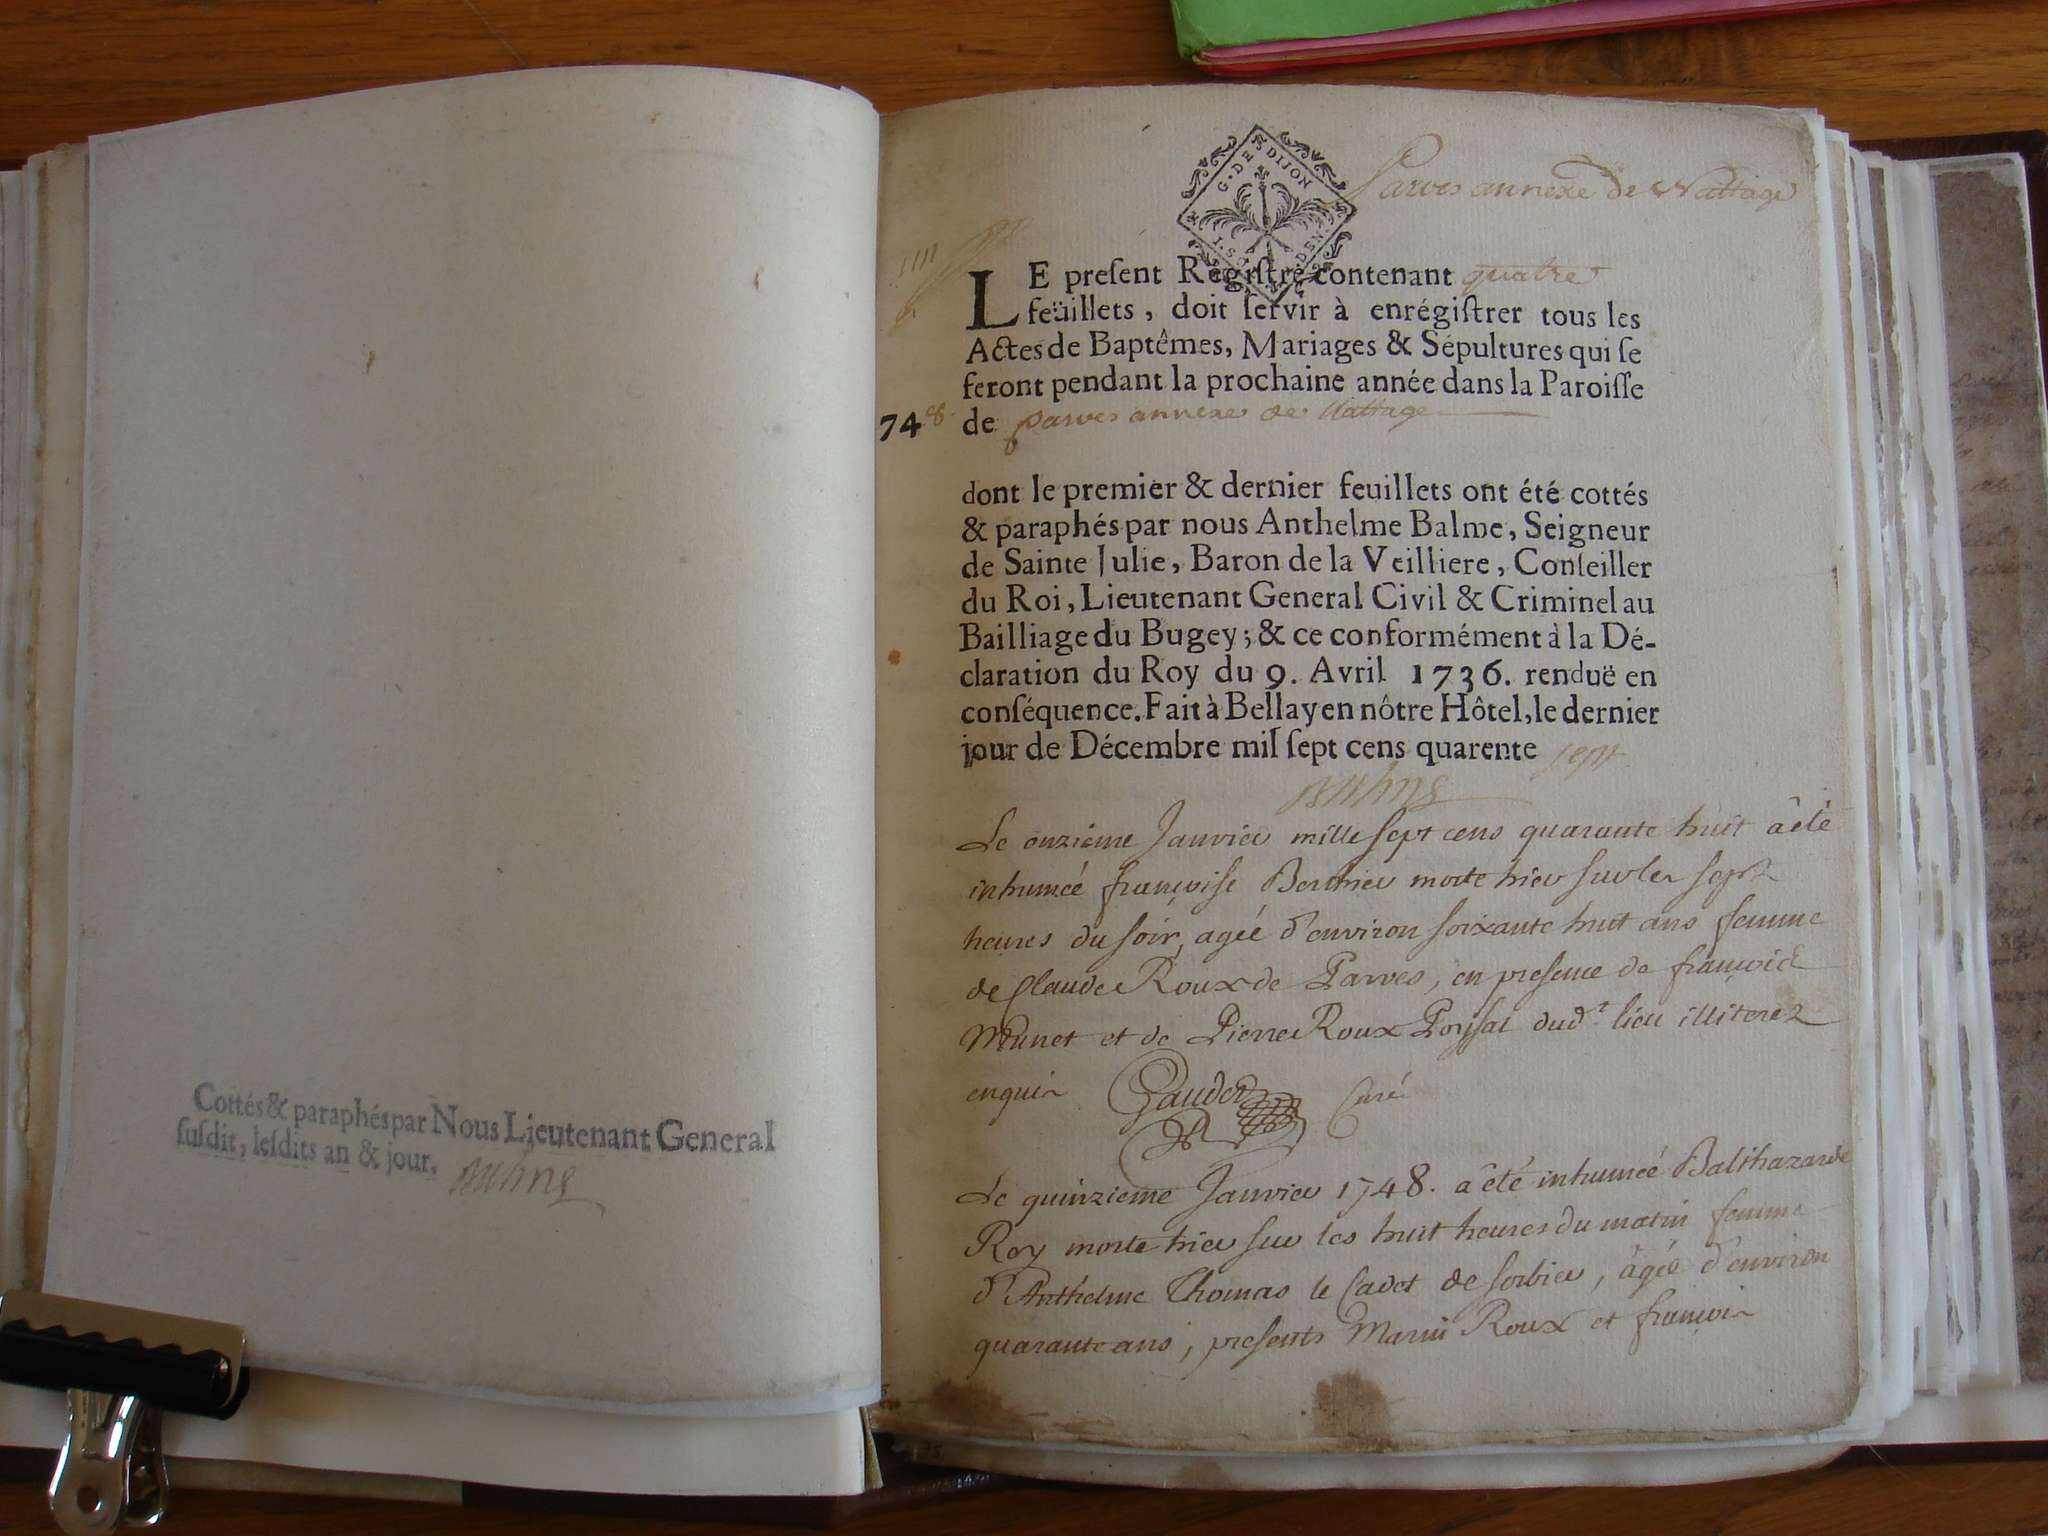 Cottés & paraphés par Nous Lieutenant General
susdit, lesdits an & jour.
G. DE DIJON
Parves annexe de Nattage
LE present Régistre contenant quatre
feüillets, doit servir à enrégistrer tous les
Actes de Baptêmes, Mariages & Sépultures qui se
feront pendant la prochaine année dans la Paroisse
748 de Parves annexe de Nattage
dont le premier & dernier feuillets ont été cottés
& paraphés par nous Anthelme Balme, Seigneur
de Sainte Julie, Baron de la Veilliere, Conseiller
du Roi, Lieutenant General Civil & Criminel au
Bailliage du Bugey; & ce conformément à la Dé-
claration du Roy du 9. Avril 1736. renduë en
conséquence. Fait à Bellay en nôtre Hôtel, le dernier
jour de Décembre mil sept cens quarente sept
Le onzieme Janvier mille sept cens quarante huit a été
inhumée françoise Berthier morte hier sur les sept
heures du soir, agée d'environ soixante huit ans femme
de Claude Roux de Parves, en presence de françois
et de Pierre Roux dud.t lieu illiterez
enquis Gaudet Curé
Le quinzieme Janvier 1748. a été inhumée Balthazarde
Roy morte hier sur les huit heures du matin femme
d'Anthelme Thomas le Cadet de sorbier, âgée d'environ
quarante ans, presents Marin Roux et françois